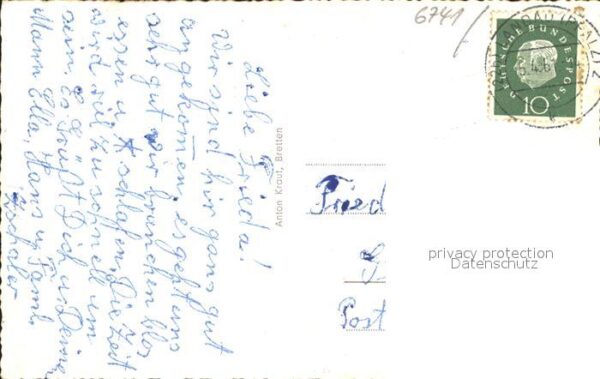 Liebe Frieda!
Wir sind hir gans gut
angekommen, es geht uns
sehr gut wir brauchen blos
essen u. schlafen. Die Zeit
wird viel zu schnell um
sein. Es Grüßt Dich u. Deinen
Mann Ella, Hans u. Faml.
Anton Kraut, Bretten
6741
LANDAU (PFALZ) 2
DEUTSCHE BUNDESPOST
10
Fried
Post
privacy protection
Datenschutz